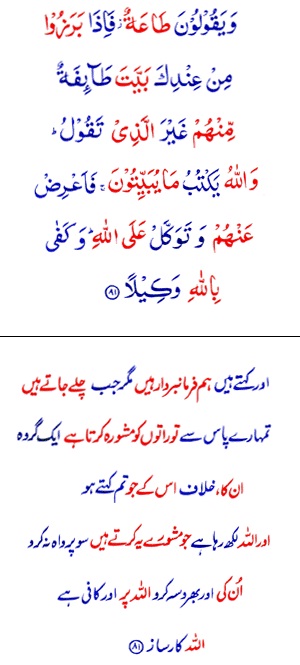 وَيَقُوۡلُوۡنَ طَاعَةٌ فَاِذَا بَرَزُوۡا
مِنۡ عِنۡدِكَ بَيَّتَ طَآئِفَةٌ
مِّنۡهُمۡ غَيۡرَ الَّذِىۡ تَقُوۡلُ ؕ
وَاللّٰهُ يَكۡتُبُ مَا يُبَيِّتُوۡنَ ۚ فَاَعۡرِضۡ
عَنۡهُمۡ وَ تَوَكَّلۡ عَلَى اللّٰهِ ؕ وَ كَفٰى
بِاللّٰهِ وَكِيۡلًا ۝۸۱
اور کہتے ہیں ہم فرمانبردار ہیں مگر جب چلے جاتے ہیں
تمہارے پاس سے تو راتوں کو مشورہ کرتا ہے ایک گروہ
ان کا، خلاف اس کے جو تم کہتے ہو
اور اللہ لکھ رہا ہے جو مشورے یہ کرتے ہیں سو پرواہ نہ کرو
اُن کی اور بھروسہ کرو اللہ پر اور کافی ہے
اللہ کارساز ۝۸۱